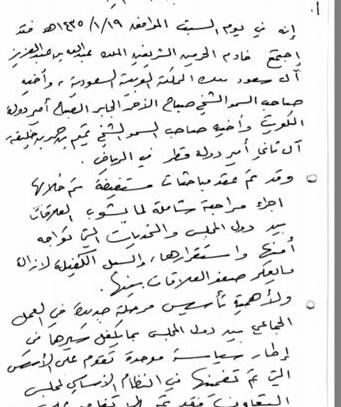 إنه في يوم السبت الموافق ١٤٣٥/١/١٩هـ فقد
اجتمع خادم الحرمين الشريفين الملك عبدالله بن عبدالعزيز
آل سعود ملك المملكة العربية السعودية، وأخيه
صاحب السمو الشيخ صباح الأحمد الجابر الصباح أمير دولة
الكويت وأخيه صاحب السمو الشيخ تميم بن حمد بن خليفة
آل ثاني أمير دولة قطر في الرياض.
وقد تم عقد مباحثات مستفيضة تم خلالها
اجراء مراجعة شاملة لما يشوب العلاقات
بين دول المجلس والتحديات التي تواجه
أمنها واستقرارها، والسبل الكفيلة لازالة
ما يعكر صفو العلاقات بينها.
ولأهمية تأسيس مرحلة جديدة في العمل
الجماعي بين دول المجلس بما يكفل سيرها في
إطار سياسة موحدة تقوم على الأسس
التي تم تضمينها في النظام الأساسي لمجلس
التعاون فقد تم